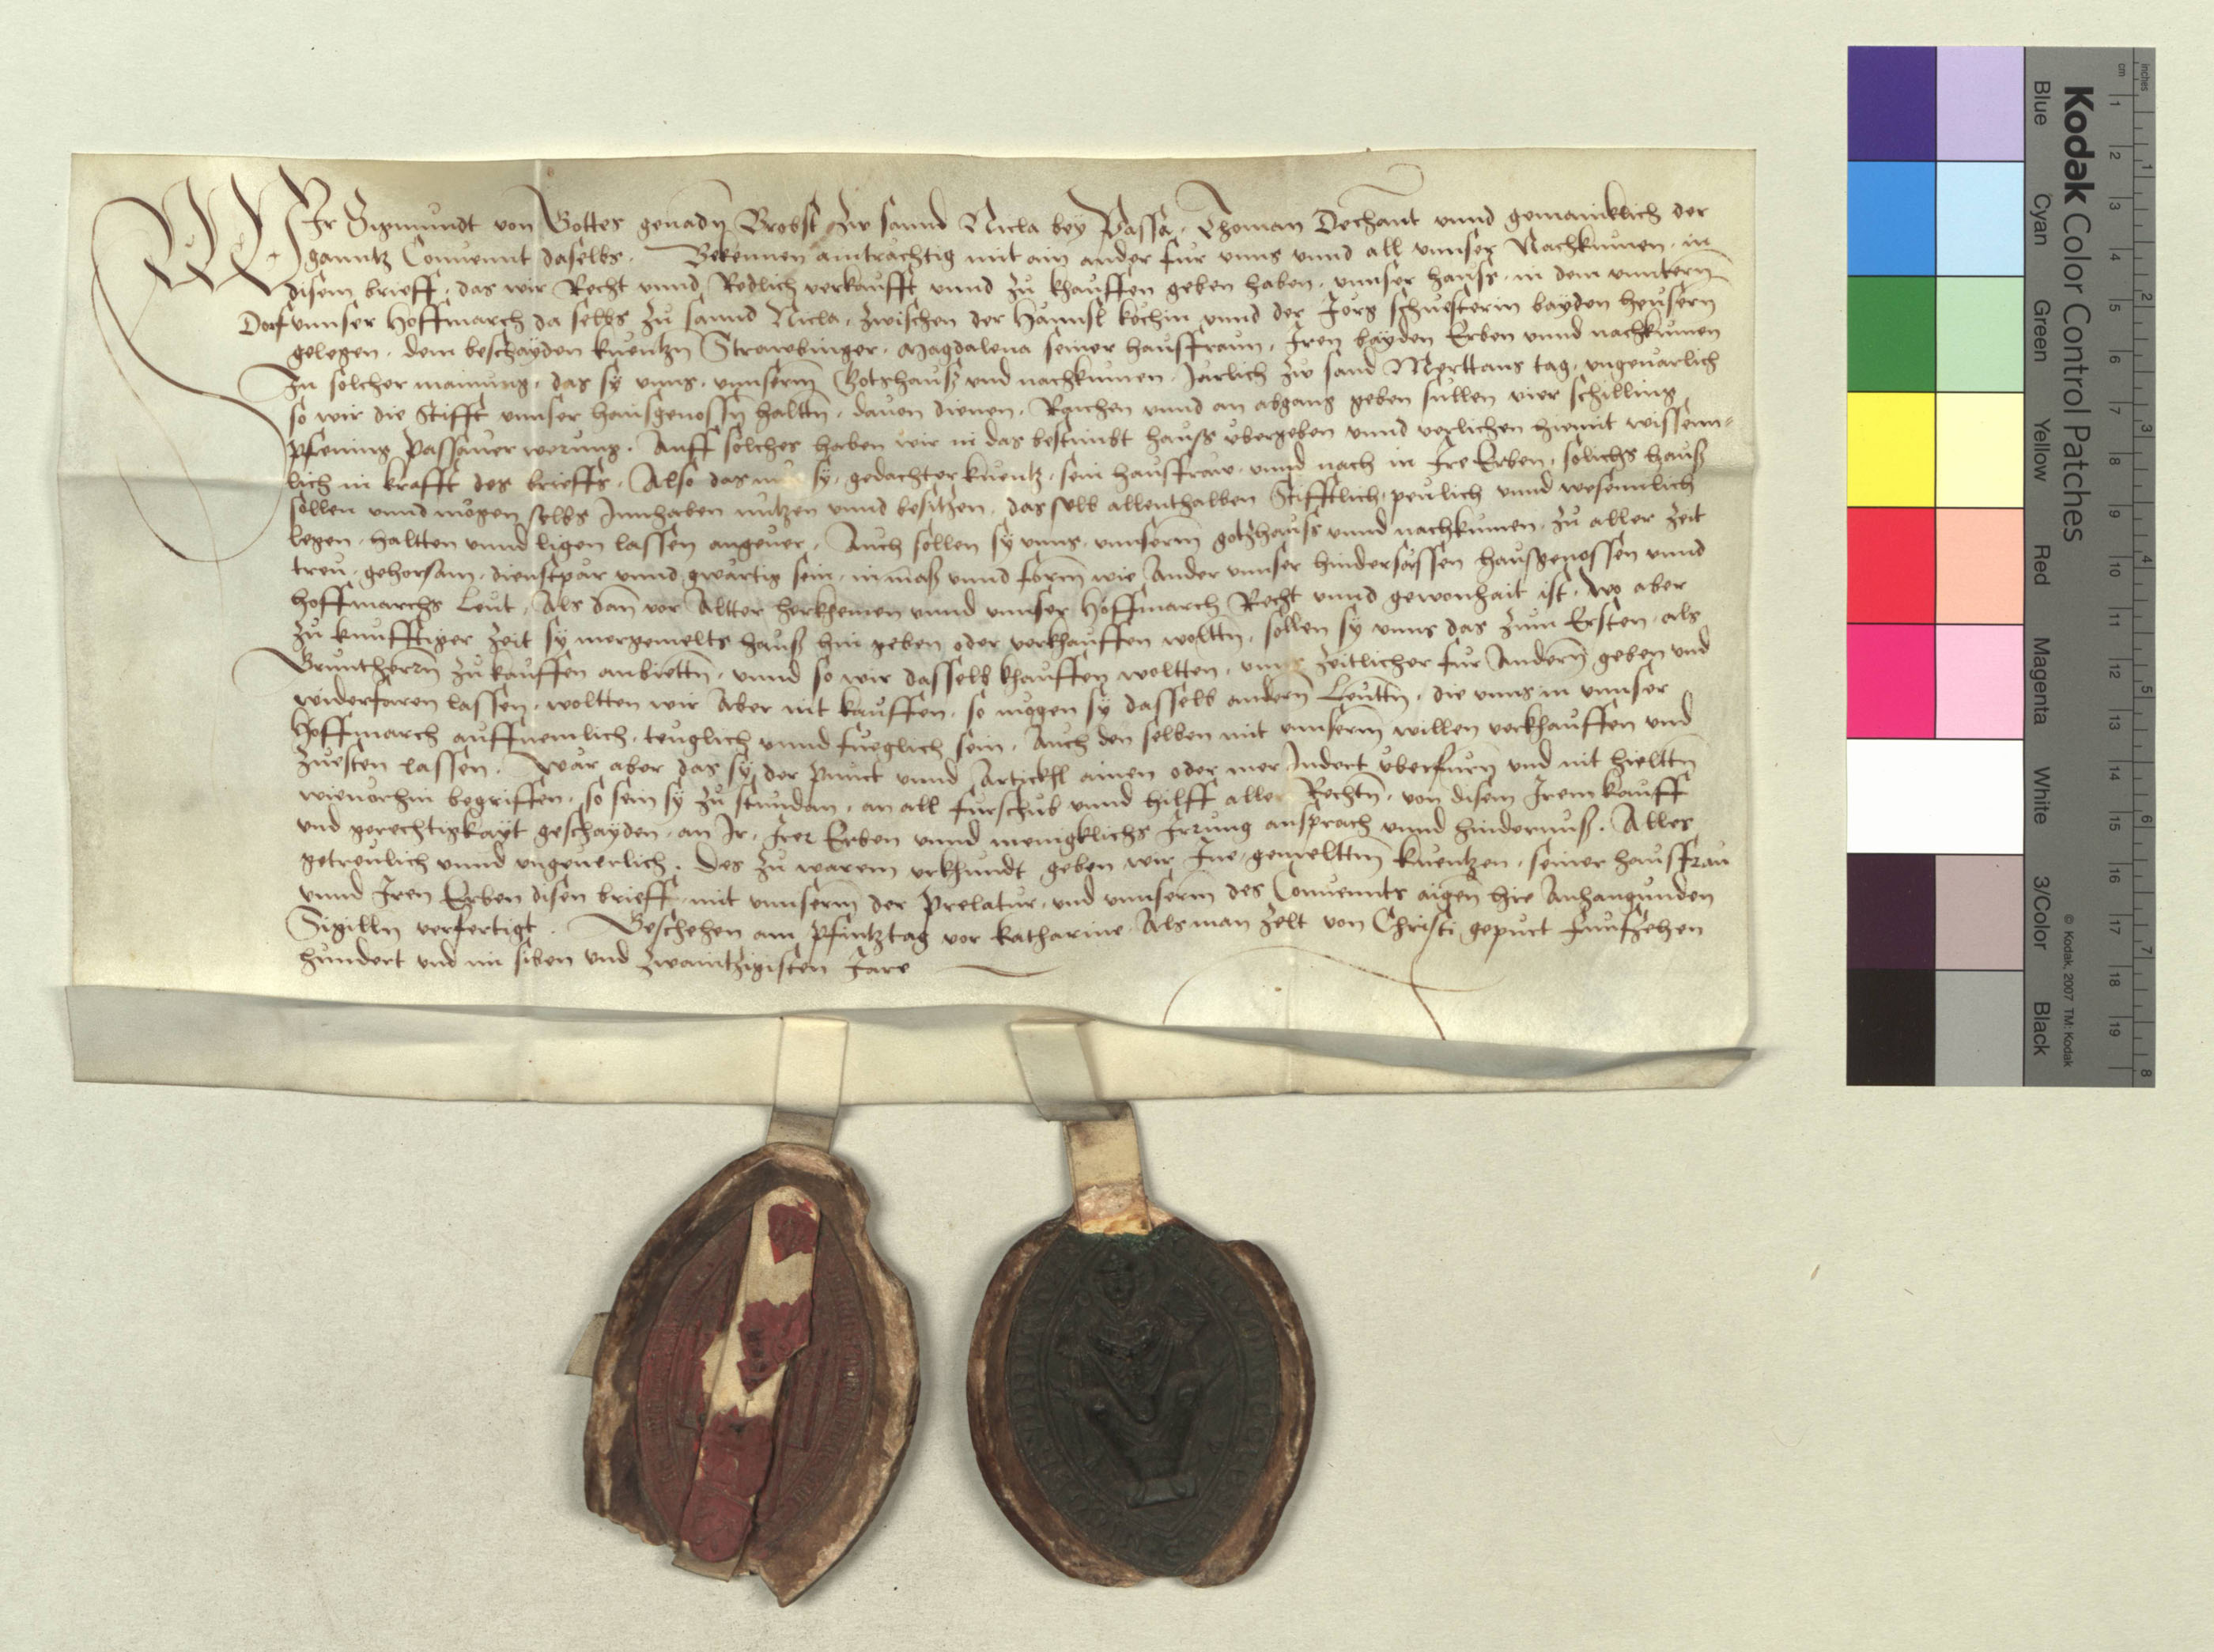 WIr Sigmundt von Gottes genadn̄ Brobst zw sannd Nicla bey Passa, Thoman Dechant vnnd gemainklich der
ganntz Conuennt daselbs. Bekennen aintrachtig mit ain ander fur vnns vnnd all vnnser Nachkumen, in
disem brieff, das wir Recht vnnd Redlich verkaufft vnnd zu khauffen geben haben, vnnser hauss, in dem vnntern̄
Dorf vnnser Hoffmarch da selbs zu sannd Nicla, zwischen der Hannsl kochin vnnd der Jorg schuesterin bayden heusern̄
gelegen, dem beschayden kuentzn Strawbinger, Magdalena seiner hausfraun, Iren bayden Erben vnnd nachkumen
In solcher mainung, das sy vnns, vnnserm̄ Gotshauß vnd nachkumen, Jarlich zw sand Merttans tag, vngeuarlich
so wir die Stifft vnnser hausgenossn̄ haltn̄, dauon dienen, Raichen vnnd an abgang geben sullen vier schilling
pfening Passauer werung. Auff solches haben wir in das bestimbt hauss vbergeben vnnd verlichen hiemit wissenn-
lich in krafft des brieffs, Also das nu sy, gedachter kuentz, sein hausfraw, vnnd nach in Ire Erben, solichs hauß
sollen vnnd mogen selbs Innhaben nutzen vnnd besitzen, das selb allenthalben Stifftlich, peulich vnnd wesennlich
legen, haltten vnnd ligen lassen angeuer, Auch sollen sy vnns, vnnserm̄ gotzhauss vnnd nachkumen, zu aller zeit
treu, gehorsam, dienstpar vnnd gwartig sein, in maß vnnd form̄ wie Ander vnnser hindersassen haußgenossen vnnd
hoffmarchs Leut, Als dan̄ vor Altter herkhemen vnnd vnnser Hoffmarch Recht vnnd gewonhait ist, Wo aber
zu kunfftiger zeit sy mergemelts hauß hin geben oder verkhauffen woltn̄, sollen sy vnns das zum Ersten, als
Gruntherrn̄ zu kauffen anbietn̄, vnnd so wir dasselb khauffen woltten, vnns zeitlicher fur Andern̄ geben vnd
widerfaren lassen, woltten wir Aber nit kauffen, so mogen sy dasselb andern̄ Leutn̄, die vnns in vnnser
Hoffmarch auffnemlich, teuglich vnnd fueglich sein, Auch den selben mit vnnserm̄ willen verkhauffen vnd
zuesten lassen. War aber das sy der punct vnnd Artickhl ainen oder mer Indert vberfurn̄ vnd nit hieltn̄
wieuorhin begriffen, so sein sy zu stundan, an all furschub vnnd hilff aller Rechtn̄, von disem Irem kauff
vnd gerechtigkayt geschayden, an Ir, Irer Erben vnnd menigklichs Irrung ansprach vnnd hindernuß. Alles
getreulich vnnd vngeuerlich. Des zu warem vrkhundt geben wir Ine, gemeltm̄ kuentzen, seiner hausfrau
vnnd Iren Erben disen brieff, mit vnnserm̄ der Prelatur, vnd vnnserm̄ des Conuennts aigen̄ hie Anhangunden
Sigilln verfertigt. Beschehen am Pfintztag vor Katharine Als man zelt von Christi gepuct funfzehen
hundert vnd im siben vnd zwaintzigisten Jare
Kodak Color Control Patches
Blue Cyan Green Yellow Red Magenta White 3/Color Black
© Kodak, 2007 TM: Kodak
cm 1 2 3 4 5 6 7 8 9 10 11 12 13 14 15 16 17 18 19
inches 1 2 3 4 5 6 7 8